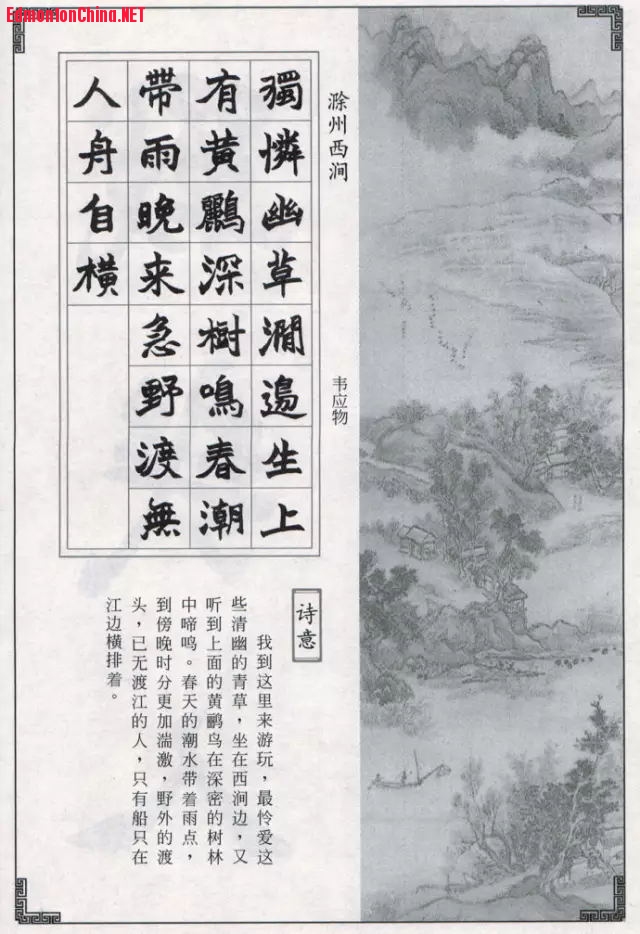 EdmontonChina.NET
滁州西涧
韦应物
獨憐幽草澗邊生上
有黃鸝深樹鳴春潮
帶雨晚来急野渡無
人舟自横
诗意
我到这里来游玩，最怜爱这
些清幽的青草，坐在西涧边，又
听到上面的黄鹂鸟在深密的树林
中啼鸣。春天的潮水带着雨点，
到傍晚时分更加湍激，野外的渡
头，已无渡江的人，只有船只在
江边横排着。